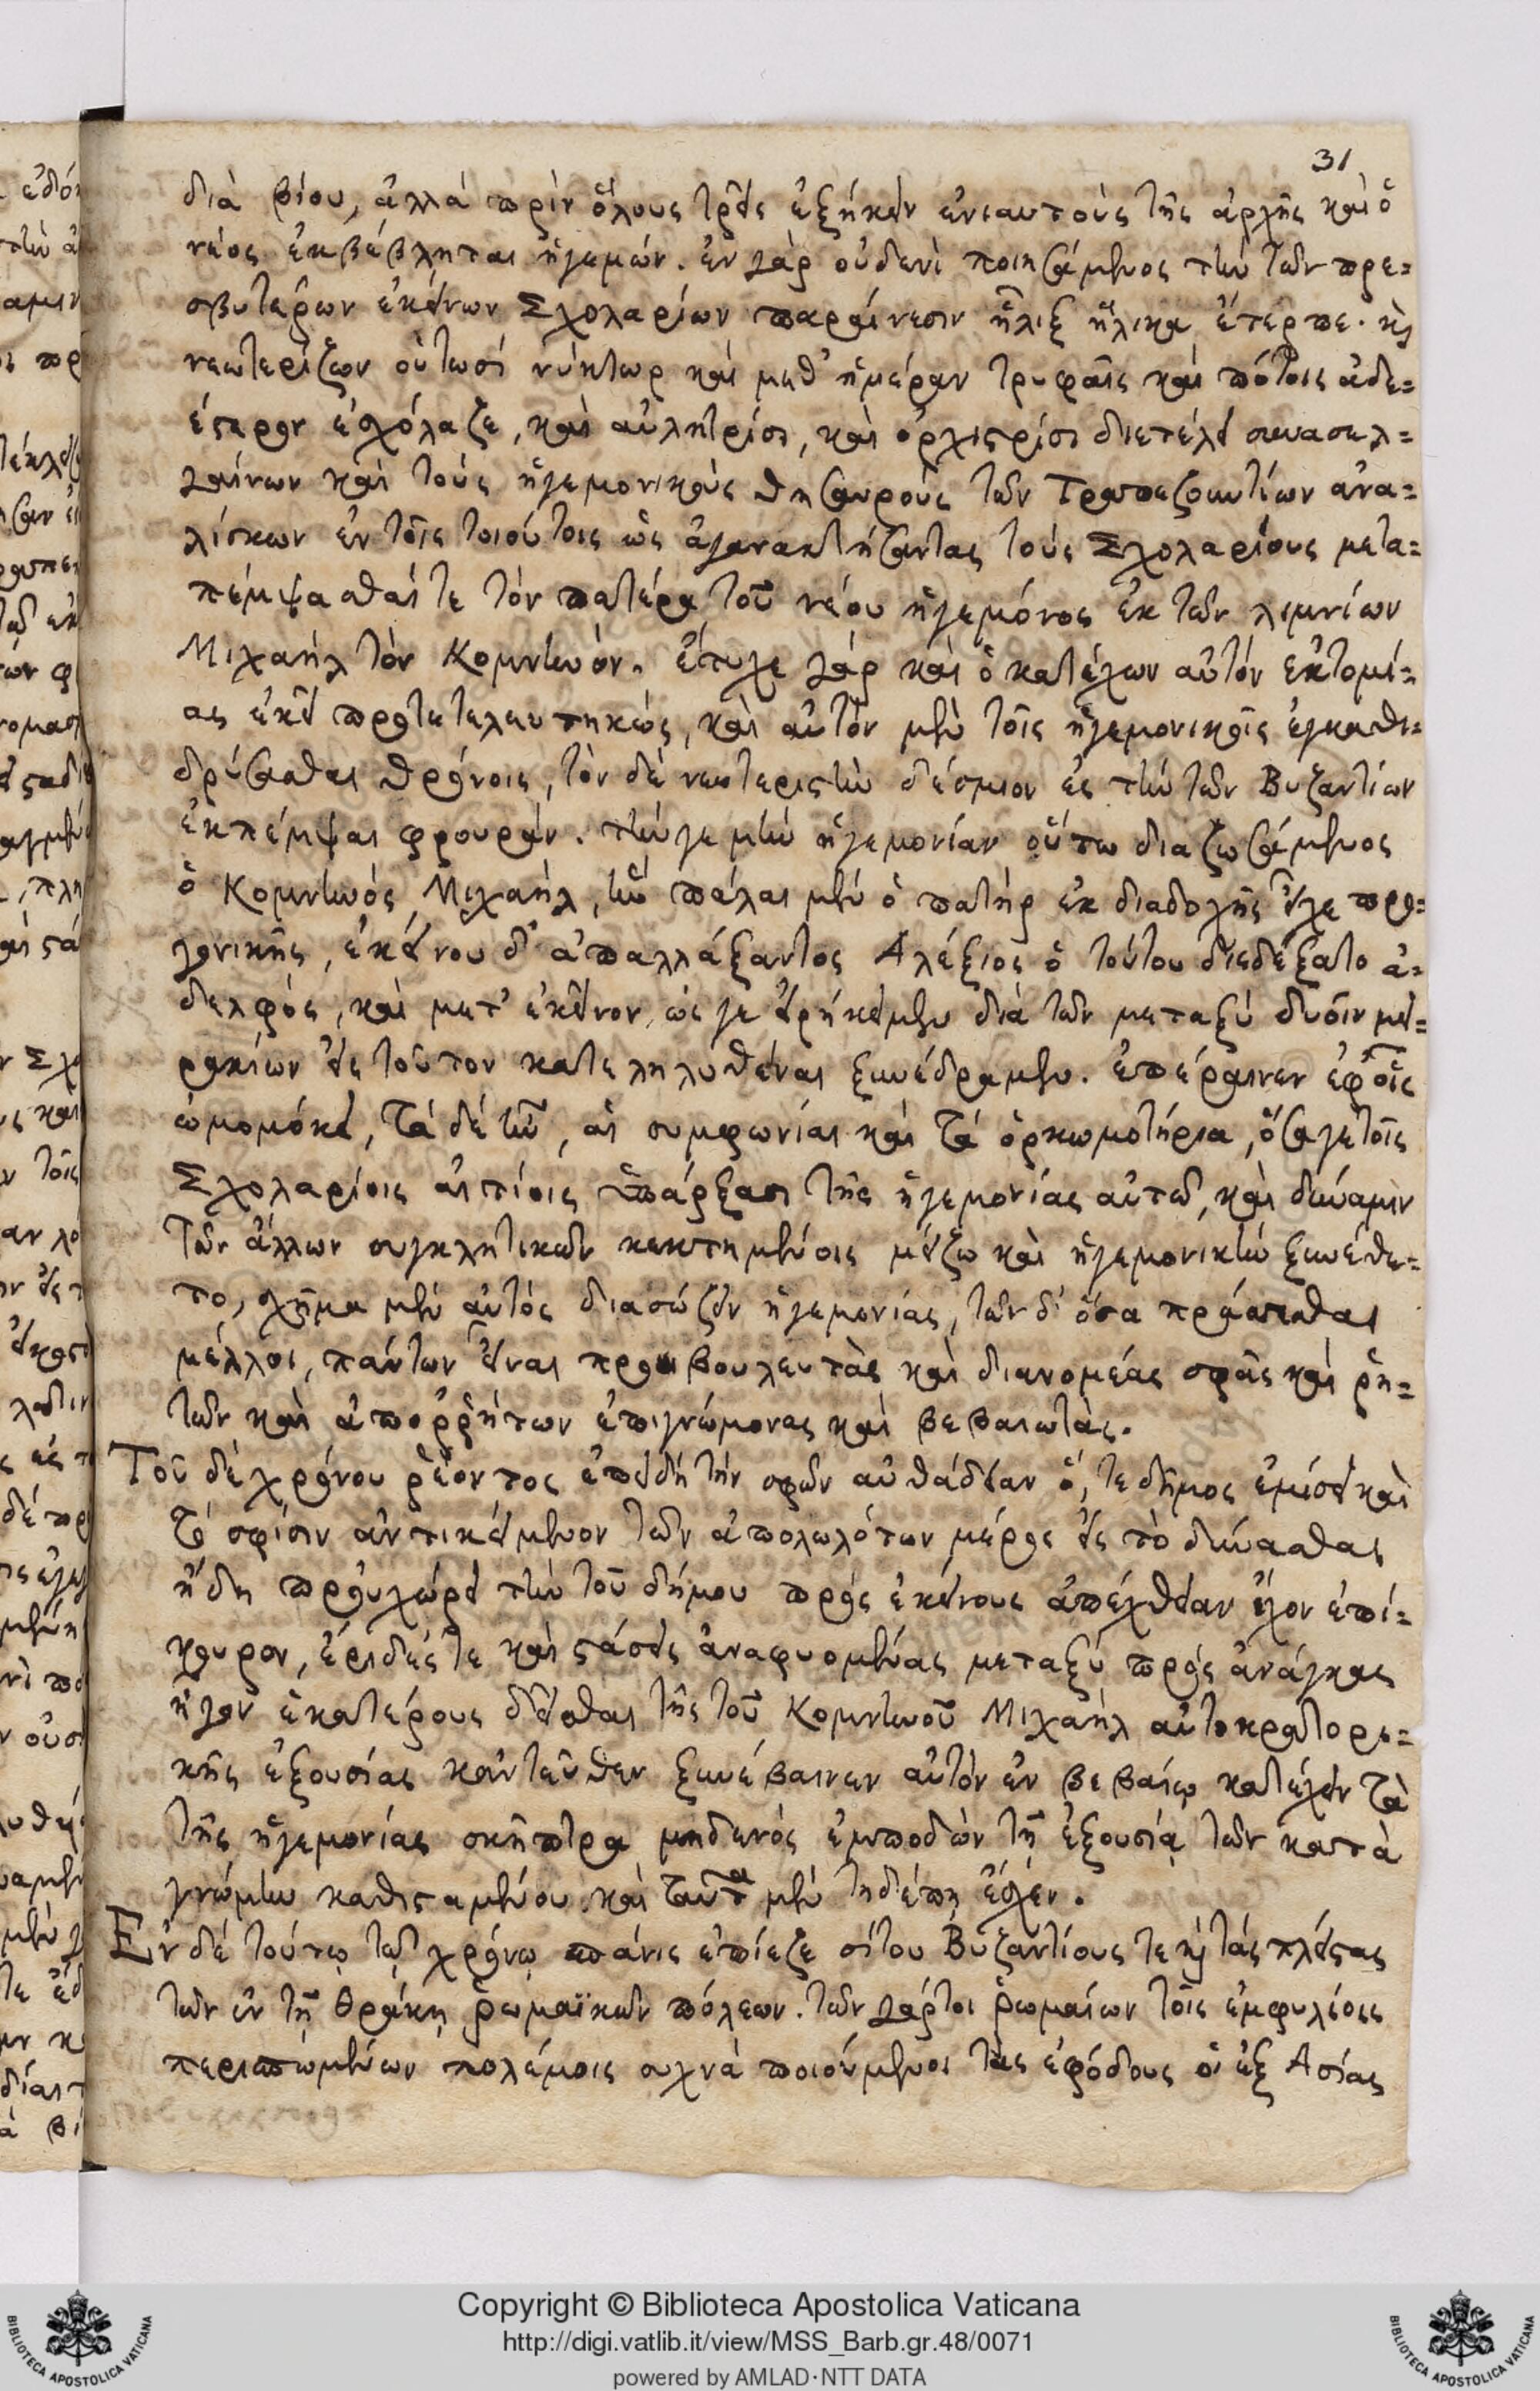 31
διὰ βίου, ἀλλὰ πρὶν ὅλους τρεῖς ἐξήκειν ἐνιαυτοὺς τῆς ἀρχῆς καὶ ὁ
νέος ἐκβέβληται ἡγεμών. ἐν γὰρ οὐδενὶ ποιησάμενος τὴν τῶν πρε=
σβυτέρων ἐκείνων Σχολαρίων παραίνεσιν ἧλιξ ἥλικα ἔτερπε. καὶ
νεωτερίζων οὑτωσὶ νύκτωρ καὶ μεθ' ἡμέραν τρυφαῖς καὶ πότοις ἀδε=
έστερον ἐσχόλαζε, καὶ αὐλητρίσι, καὶ ὀρχιστρίσι διετέλει συνασελ=
γαίνων καὶ τοὺς ἡγεμονικοὺς θησαυροὺς τῶν Τραπεζουντίων ἀνα=
λίσκων ἐν τοῖς τοιούτοις ὡς ἀγανακτήσαντας τοὺς Σχολαρίους μετα=
πέμψασθαί τε τὸν πατέρα τοῦ νέου ἡγεμόνος ἐκ τῶν λιμνίων
Μιχαὴλ τὸν Κομνηνόν. ἔτυχε γὰρ καὶ ὁ κατέχων αὐτὸν ἐκτομί=
ας ἐκεῖ προτετελευτηκώς, καὶ αὐτὸν μὲν τοῖς ἡγεμονικοῖς ἐγκαθι=
δρύσασθαι θρόνοις, τὸν δὲ νεωτεριστὴν δέσμιον ἐς τὴν τῶν Βυζαντίων
ἐκπέμψαι φρουράν. τήν γε μὴν ἡγεμονίαν οὕτω διαζωσάμενος
ὁ Κομνηνός Μιχαήλ, ἣν πάλαι μὲν ὁ πατὴρ ἐκ διαδοχῆς εἶχε προ=
γονικῆς, ἐκείνου δ' ἀπαλλάξαντος Αλέξιος ὁ τούτου διεδέξατο ἀ=
δελφός, καὶ μετ' ἐκεῖνον, ὥς γε εἰρήκειμεν διὰ τῶν μεταξὺ δυσὶν μει=
ρακίων εἰς τοῦτον κατεληλυθέναι ξυνέδραμεν. ἐπέραινεν ἐφ' οἷς
ὠμομόκει, τὰ δὲ ἦν, αἱ συμφωνίαι καὶ τὰ ὁρκωμοτήρια, ὅσα γε τοῖς
Σχολαρίοις αἰτίοις ὑπάρξασι τῆς ἡγεμονίας αὐτῶ, καὶ δύναμιν
τῶν ἄλλων συγκλητικῶν κεκτημένοις μείζω καὶ ἡγεμονικὴν ξυνέθε=
το, σχῆμα μὲν αὐτὸς διασώζειν ἡγεμονίας, τῶν δ' ὅσα πράττεσθαι
μέλλοι, πάντων εἶναι προβουλευτὰς καὶ διανομέας σφᾶς καὶ ῥη=
τῶν καὶ ἀπορρήτων ἐπιγνώμονας καὶ βεβαιωτάς.
Τοῦ δὲ χρόνου ῥέοντος ἐπειδὴ τήν σφῶν αὐθάδειαν ὅ, τε δῆμος ἐμίσει καὶ
τό σφίσιν ἀντικείμενον τῶν ἀπολωλότων μέρος εἰς τὸ δύνασθαι
ἤδη προὐχώρει τὴν τοῦ δήμου πρὸς ἐκείνους ἀπέχθειαν ἔχον ἐπί=
κουρον, ἔριδές τε καὶ στάσεις ἀναφυομένας μεταξὺ πρὸς ἀνάγκας
ἦγον ἑκατέρους δεῖσθαι τῆς τοῦ Κομνηνοῦ Μιχαὴλ αὐτοκρατορι=
κῆς ἐξουσίας κἀντεῦθεν ξυνέβαινεν αὐτὸν ἐν βεβαίῳ κατέχειν τὰ
τῆς ἡγεμονίας σκῆπτρα μηδενός ἐμποδὼν τῇ ἐξουσίᾳ τῶν κατὰ
γνώμην καθισταμένου. καὶ ταῦτα μὲν τῃδέπη ἔσχεν.
Εν δὲ τούτῳ τῷ χρόνῳ σπάνις ἐπίεζε σίτου Βυζαντίους τε καὶ τὰς πλείστας
τῶν ἐν τῇ Θράκῃ ῥωμαϊκῶν πόλεων. τῶν γάρτοι ῥωμαίων τοῖς ἐμφυλίοις
περιπτωμένων πολέμοις συχνὰ ποιούμενοι τὰς ἐφόδους οἱ ἐξ Ασίας
Copyright © Biblioteca Apostolica Vaticana
http://digi.vatlib.it/view/MSS_Barb.gr.48/0071
powered by AMLAD·NTT DATA
BIBLIOTECA APOSTOLICA VATICANA
BIBLIOTECA APOSTOLICA VATICANA